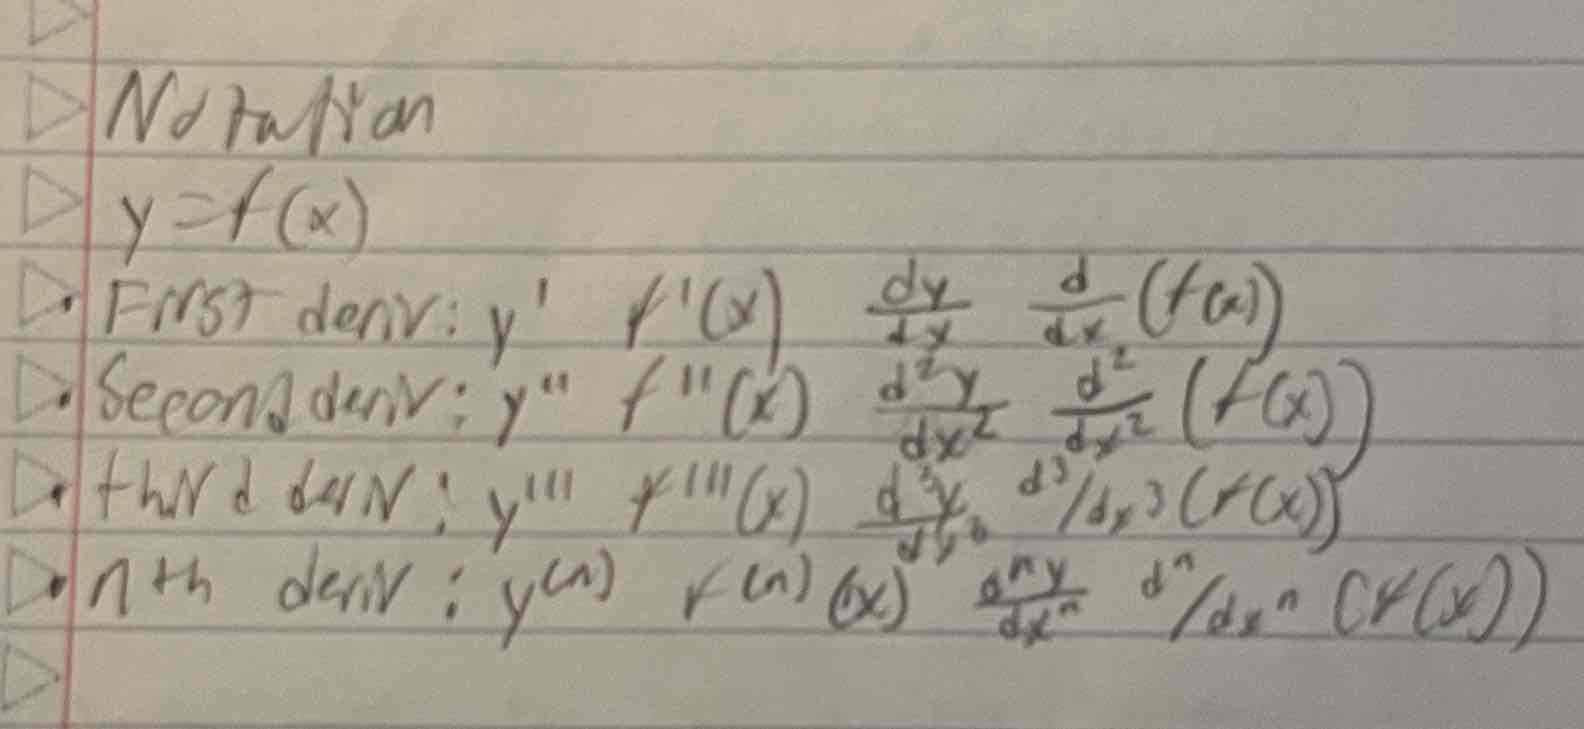 Notation
y = f(x)
• First deriv: y' f'(x) dy/dx d/dx (f(x))
• Second deriv: y'' f''(x) d²y/dx² d²/dx² (f(x))
• third deriv: y''' f'''(x) d³y/dx³ d³/dx³ (f(x))
• nth deriv: y⁽ⁿ⁾ f⁽ⁿ⁾(x) dⁿy/dxⁿ dⁿ/dxⁿ (f(x))